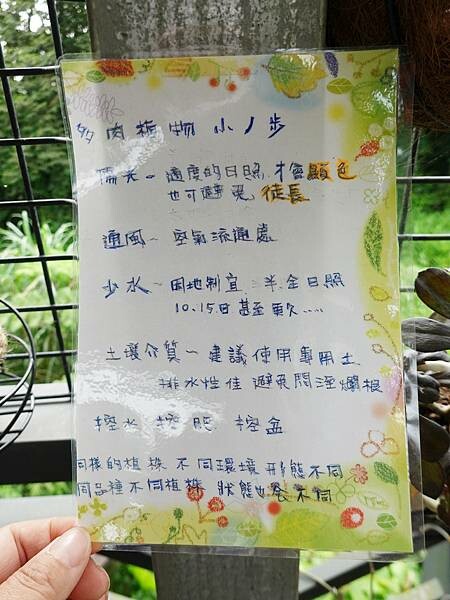 多肉植物小ノ步
陽光~適度的日照.才會顯色
也可避免徒長
通風~空氣流通處
少水~因地制宜:半全日照
10.15日甚至更久.....
土壤介質~建議使用專用土
排水性佳避免悶溼爛根
控水 控肥 控盆
同樣的植株不同環境形態不同
同品種不同植株狀態也會不同